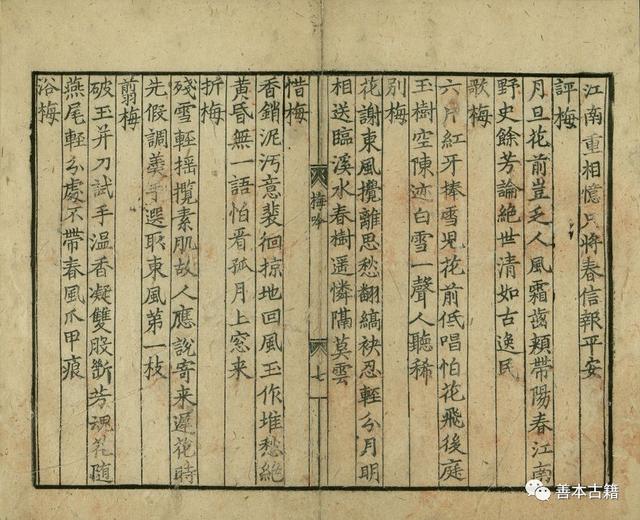 江南重相憶只將春信報平安
評梅
月旦花前豈乏人風霜齒頰帶陽春江南
野史餘芳論絕世清如古逸民
歌梅
六片紅牙捧雪兒花前低唱怕花飛後庭
玉樹空陳迹白雪一聲人聽稀
別梅
花謝東風攪離思愁翻縞袂忍輕分月明
相送臨溪水春樹遥憐隔莫雲
梅吟
七
惜梅
香銷泥汚意裴徊掠地回風玉作堆愁絕
黄昏無一語怕看孤月上窓來
折梅
殘雪輕摇攬素肌故人應說寄来遲花時
先假調羹手選取東風第一枝
翦梅
破玉并刀試手温香凝雙股斷芳魂花随
燕尾輕分處不帶春風爪甲痕
浴梅
善本古籍